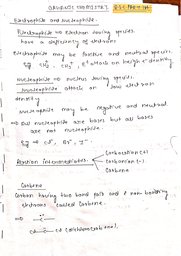 ORGANIC CHEMISTRY
Electrophile and nucleophile:
Electrophile ⇒ Electron loving species.
have a deficiency of electrons
Electrophile may be positive and neutral species.
attacks on high e⁻ density
Nucleophile ⇒ nucleus loving species.
Nucleophile attacks on low electron
density
Nucleophile may be negative and neutral
⇒ all nucleophile are bases but all bases
are not nucleophile.
Reaction Intermediates
Carbocation (+)
Carbanion (-)
Carbene
Carbene
Carbon having two bond pair and 2 non-bonding
electrons called Carbene.